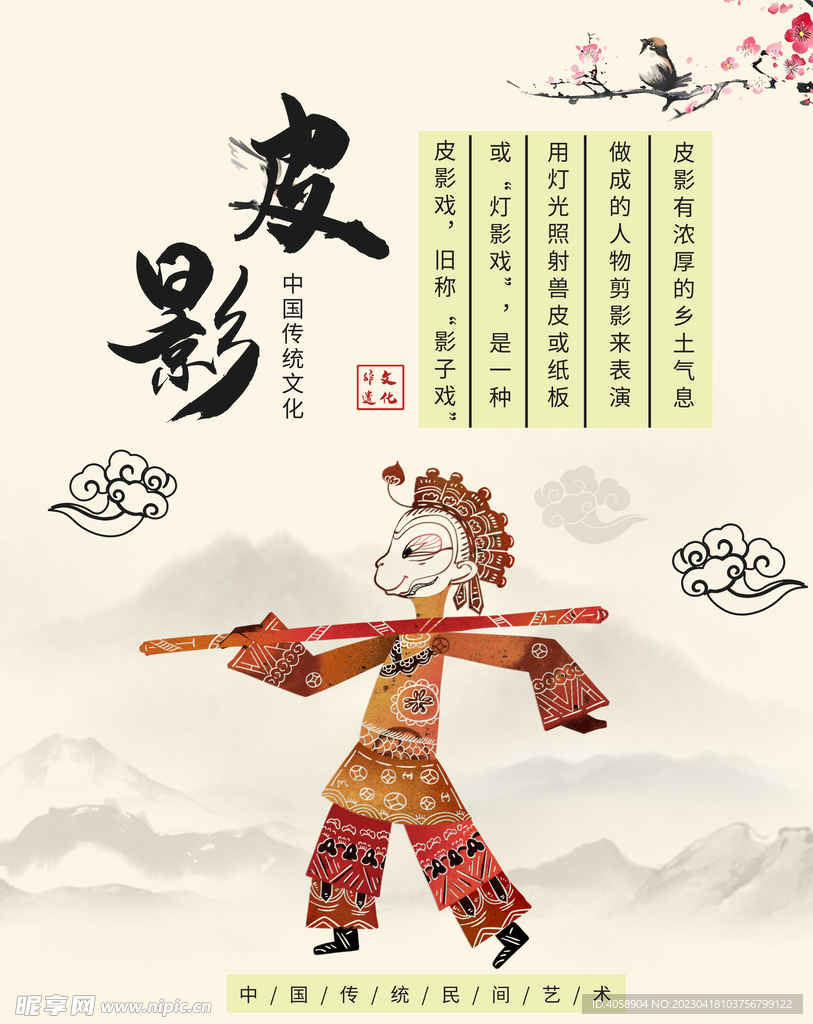 皮影
中国传统文化
非遗
文化
皮影戏，旧称“影子戏”
或“灯影戏”，是一种
用灯光照射兽皮或纸板
做成的人物剪影来表演
皮影有浓厚的乡土气息
中/国/传/统/民/间/艺/术
昵享网 www.nipic.cn
ID:4058904 NO:20230418103756799122